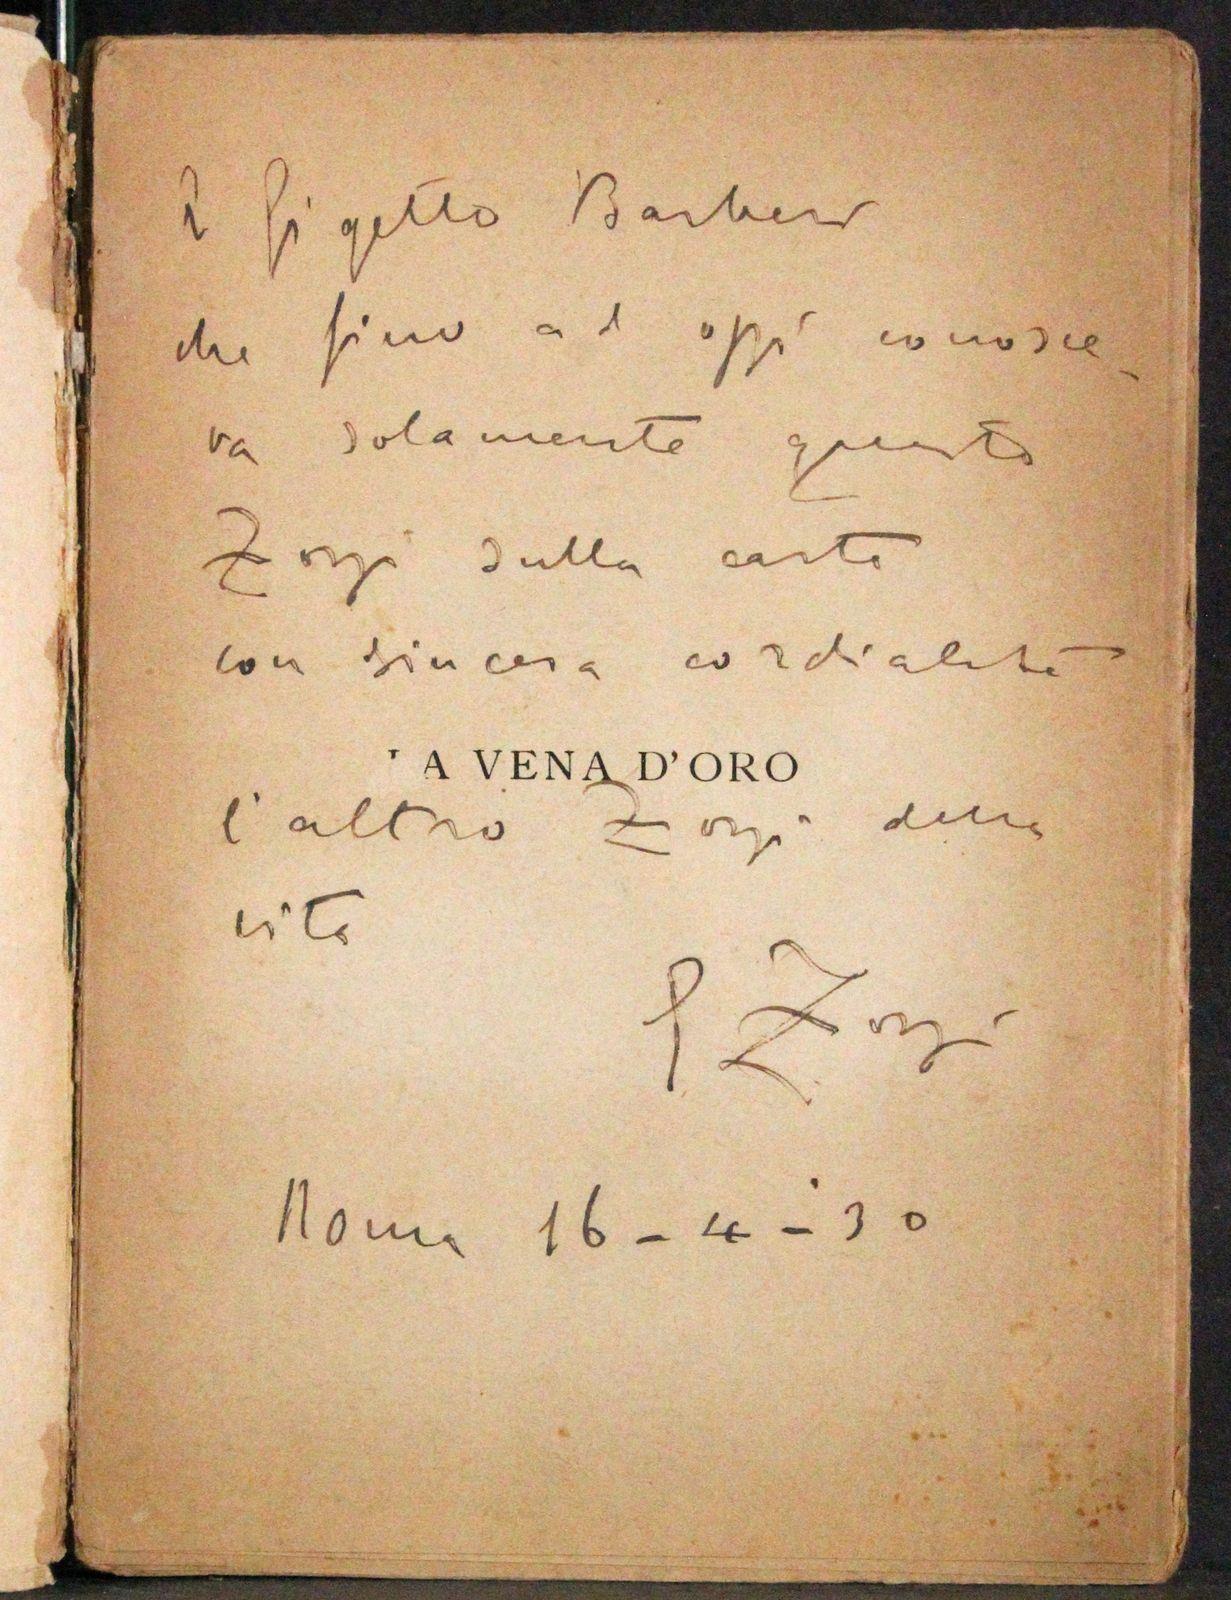 A Gigetto Barbero
che fino ad oggi conosce-
va solamente questo
Zorzi sulla carta
con sincera cordialità
LA VENA D'ORO
l'altro Zorzi della
vita
G Zorzi
Roma 16-4-'30